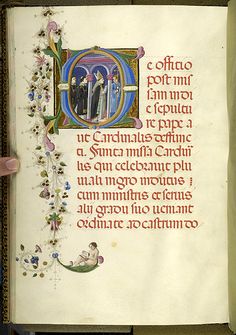 De officio
post mis
sam in die
sepultu
re pape a
ut Cardinalis deffunc
ti. Finita missa Cardi
lis qui celebravit plu
viali nigro indutus
cum ministris et servis
alij gradu suo veniant
ordinate ad castrum do